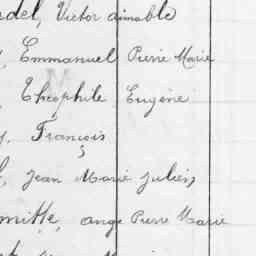 del, Victor aimable
, Emmanuel Pierre Marie
, Théophile Eugène
, François
, Jean Marie Julien,
mitte, ange Pierre Marie